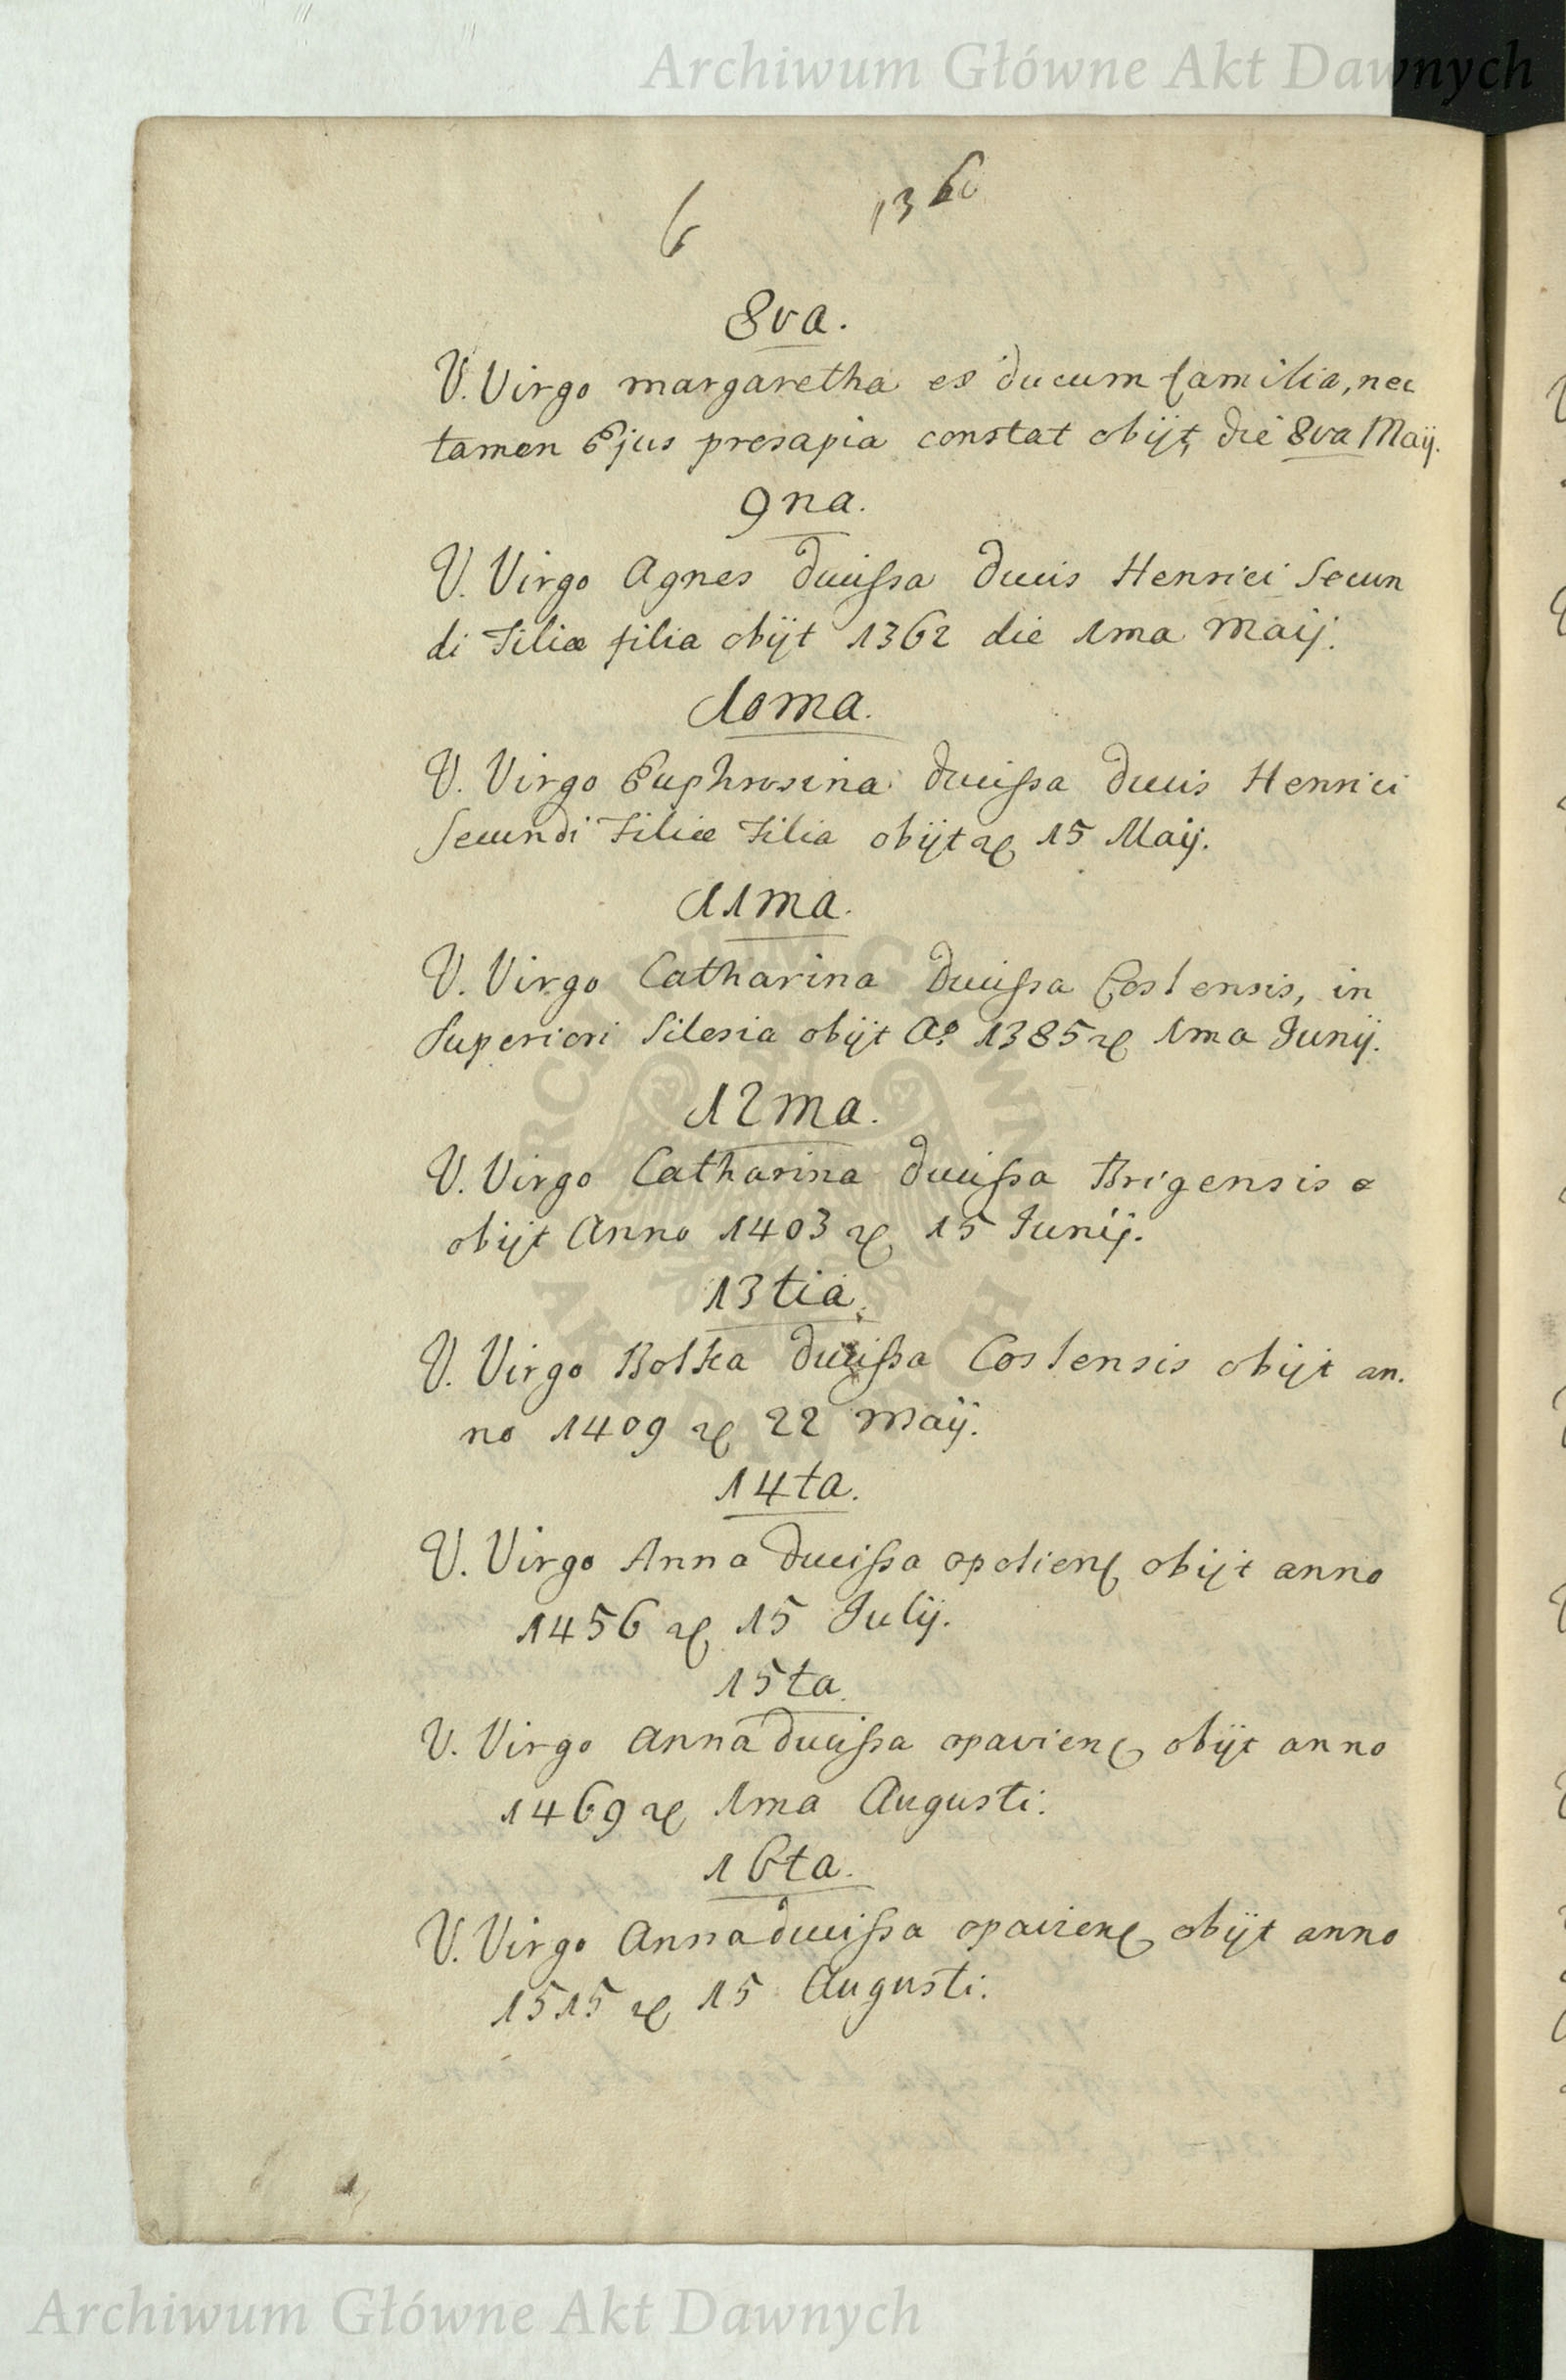 Archiwum Główne Akt Dawnych
6 1360
8va.
V. Virgo margaretha ex ducum familia, nec
tamen Ejus presapia constat obijt, die 8va Maij.
9na.
V. Virgo Agnes duciſsa Ducis Henrici Secun
di Filiæ filia obijt 1362 die 1ma Maij.
10ma.
V. Virgo Euphrosina duciſsa Ducis Henrici
Secundi Filiæ Filia obijt 15 Maij.
11ma.
V. Virgo Catharina Duciſsa Coslensis, in
Superiori Silesia obijt Aº 1385 1ma Junij.
12ma.
V. Virgo Catharina duciſsa Brigensis
obijt Anno 1403 15 Junij.
13tia.
V. Virgo Bolka Duciſsa Coslensis obijt an.
no 1409 22 Maij.
14ta.
V. Virgo Anna Duciſsa opolien obijt anno
1456 15 Julij.
15ta.
V. Virgo Anna duciſsa opavien obijt anno
1469 1ma Augusti.
16ta.
V. Virgo Anna duciſsa opavien obijt anno
1515 15 Augusti.
ARCHIWUM GŁÓWNE AKT DAWNYCH
Archiwum Główne Akt Dawnych